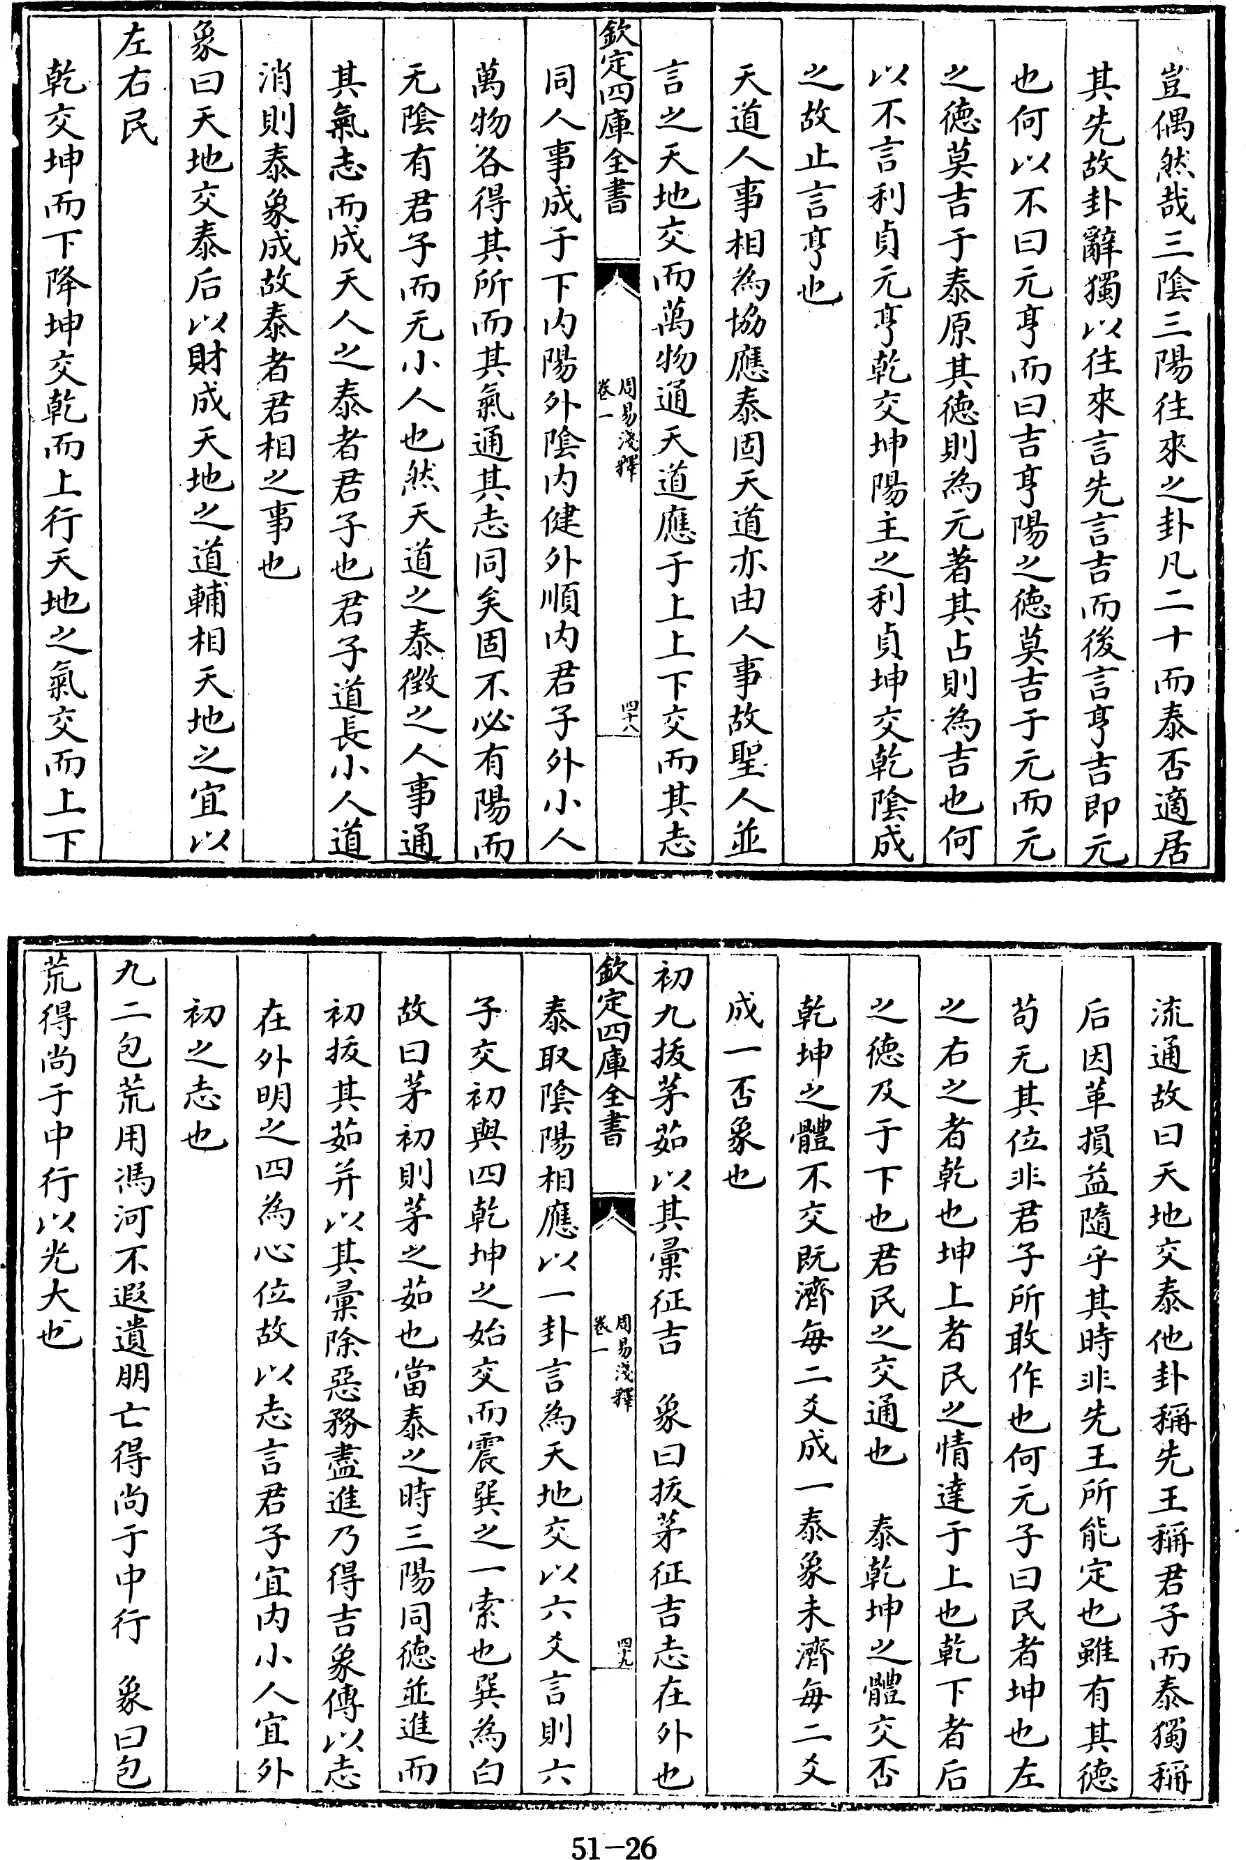 豈偶然哉三陰三陽往來之卦凡二十而泰否適居
其先故卦辭獨以往來言先言吉而後言亨吉即元
也何以不曰元亨而曰吉亨陽之德莫吉于元而元
之德莫吉于泰原其德則為元著其占則為吉也何
以不言利貞元亨乾交坤陽主之利貞坤交乾陰成
之故止言亨也
天道人事相為協應泰固天道亦由人事故聖人並
言之天地交而萬物通天道應于上上下交而其志
欽定四庫全書
周易淺釋
卷一
四十八
同人事成于下内陽外陰内健外順内君子外小人
萬物各得其所而其氣通其志同矣固不必有陽而
无陰有君子而无小人也然天道之泰徵之人事通
其氣志而成天人之泰者君子也君子道長小人道
消則泰象成故泰者君相之事也
象曰天地交泰后以財成天地之道輔相天地之宜以
左右民
乾交坤而下降坤交乾而上行天地之氣交而上下
流通故曰天地交泰他卦稱先王稱君子而泰獨稱
后因革損益隨乎其時非先王所能定也雖有其德
苟无其位非君子所敢作也何元子曰民者坤也左
之右之者乾也坤上者民之情達于上也乾下者后
之德及于下也君民之交通也　泰乾坤之體交否
乾坤之體不交既濟每二爻成一泰象未濟每二爻
成一否象也
初九拔茅茹以其彙征吉　象曰拔茅征吉志在外也
欽定四庫全書
周易淺釋
卷一
四十九
泰取陰陽相應以一卦言為天地交以六爻言則六
子交初與四乾坤之始交而震巽之一索也巽為白
故曰茅初則茅之茹也當泰之時三陽同德並進而
初拔其茹并以其彙除惡務盡進乃得吉象傳以志
在外明之四為心位故以志言君子宜内小人宜外
初之志也
九二包荒用馮河不遐遺朋亡得尚于中行　象曰包
荒得尚于中行以光大也
51-26